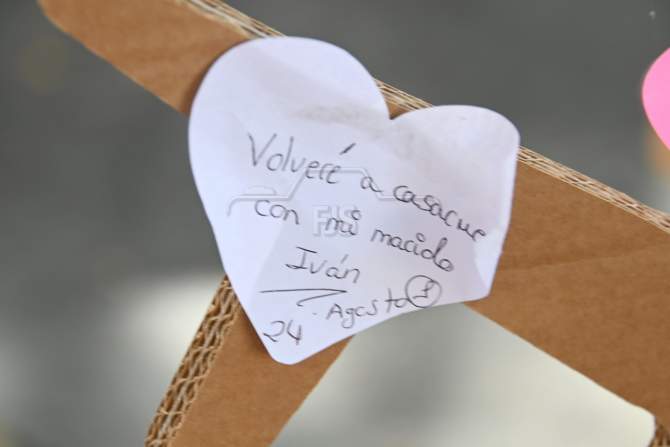 Volveré a casacme
con mi macido
Iván
24 Agosto
FJS